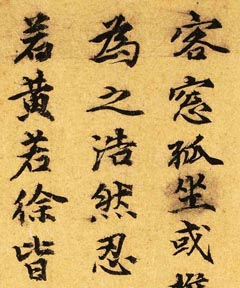 客窓孤坐或
為之浩然忍
若黄若徐皆